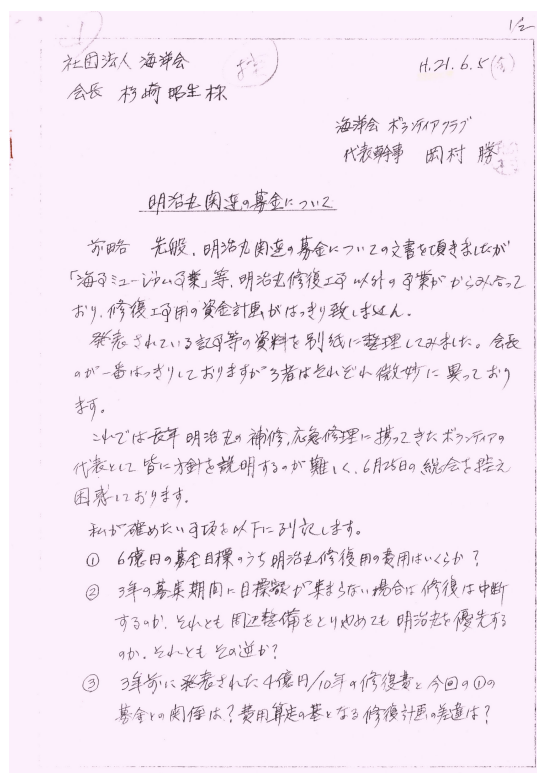 1/2
社団法人 海洋会
控
H.21.6.5(金)
会長 杉崎昭生様
海洋会 ボランティアクラブ
代表幹事 岡村 勝
明治丸関連の募金について
前略 先般、明治丸関連の募金についての文書を頂きましたが
「海事ミュージアム事業」等、明治丸修復工事以外の事業がからみ合って
おり、修復工事用の資金計画がはっきり致しません。
発表されている記事等の資料を別紙に整理してみました。会長
のが一番はっきりしておりますが3者はそれぞれ微妙に異っており
ます。
これでは長年明治丸の補修、応急修理に携ってきたボランティアの
代表として皆に方針を説明するのが難しく、6月25日の総会を控え
困惑しております。
私が確めたい事項を以下に列記します。
① 6億円の募金目標のうち明治丸修復用の費用はいくらか?
② 3年の募集期間に目標額が集まらない場合は修復は中断
するのか、それとも周辺整備をとりやめても明治丸を優先する
のか、それともその逆か?
③ 3年前に発表された4億円/10年の修復費と今回の①の
募金との関係は?費用算定の基となる修復計画の差違は?